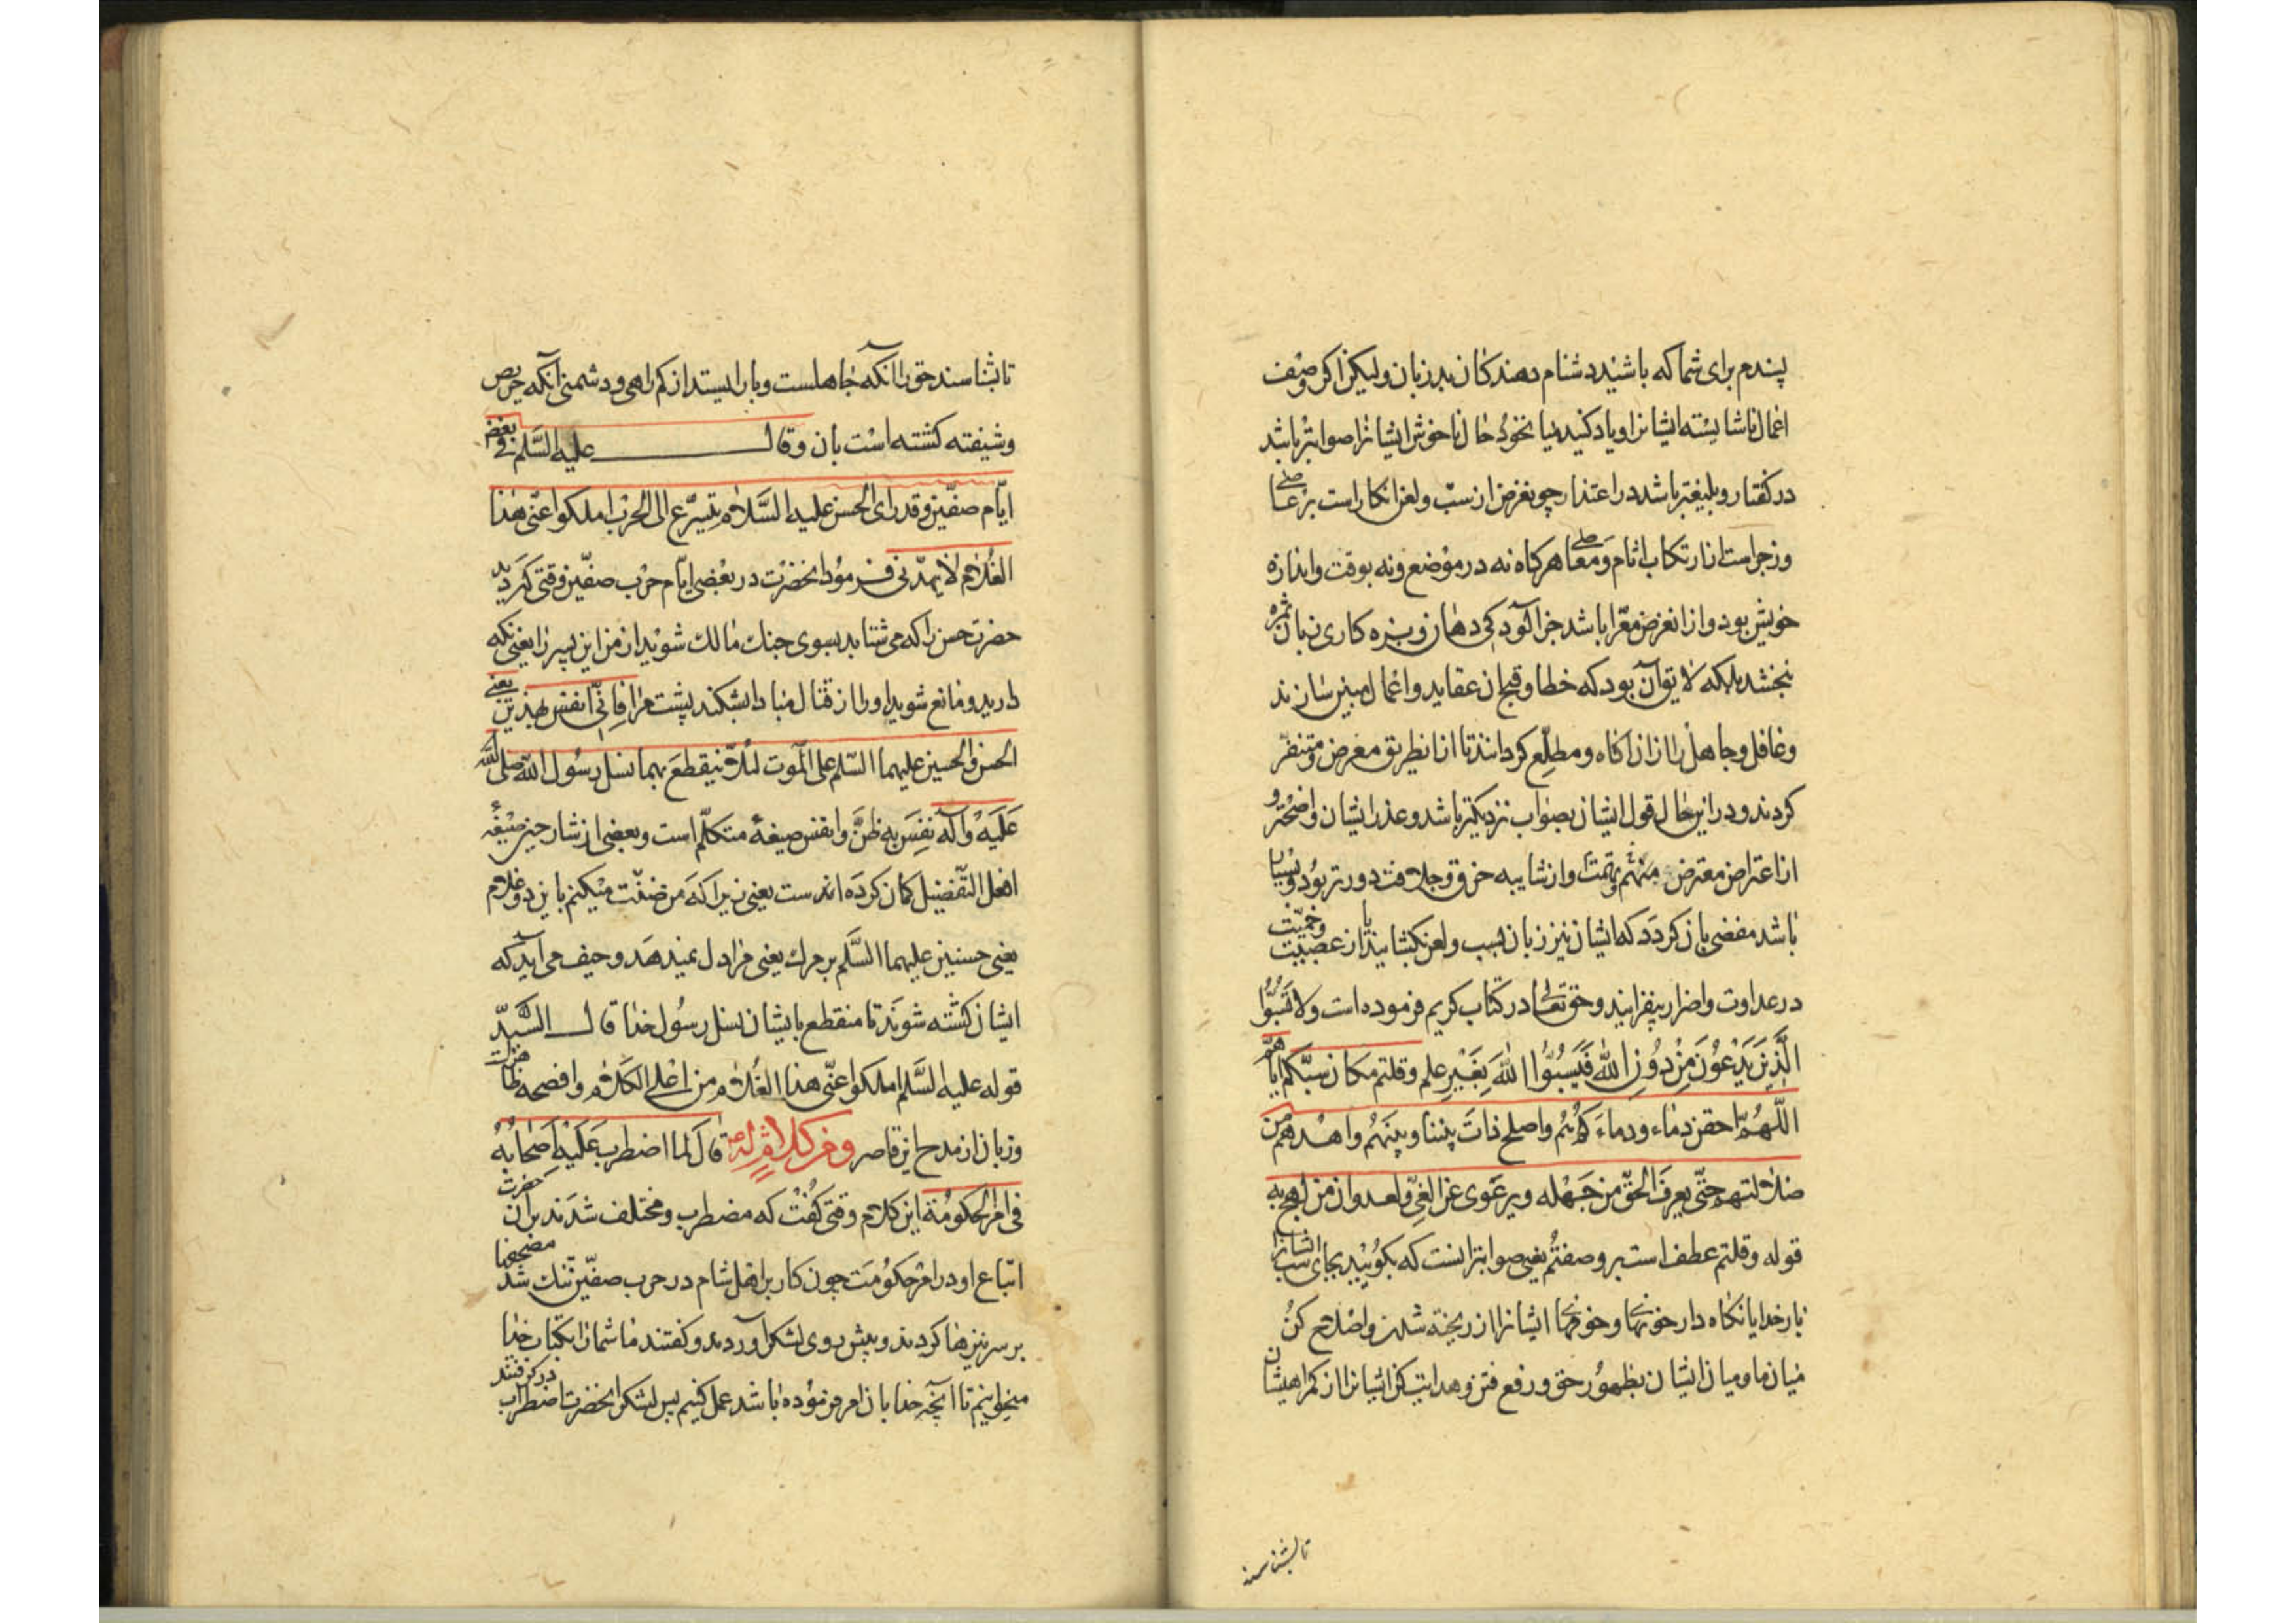 پسندم برای شما که باشید دشنام دهندکان بد زبان ولیکن اکر وصف
اعمال ناشایسته ایشانرا و یاد کنید میانخود حال ناخوش ایشانرا صوابتر باشد
در کفتار و بلیغتر باشد در اعتذار چو غرض از سبّ و لعن انکار است بر عاصی
و زجر است از ارتکاب اثام و معاصی هرکاه نه در موضع و نه بوقت و اندازه
خویش بود و از انغرض معرّا باشد جز آلودکی دهان و بزه کاری زبان ثمره
نبخشد بلکه لایق آن بود که خطا و قبح ان عقاید و اعمال مبین سازند
و غافل و جاهل را از ان اکاه و مطلع کردانند تا از انطریق معرض و متنفّر
کردند و در این حال قول ایشان بصواب نزدیکتر باشد و عذر ایشان واضحتر و
از اعتراض معترض و تهمت متهم و از شایبه خرق و جلافت دورتر بود و بسیار
باشد مفضی بان کردد که ایشان نیز زبان بسب و لعن بکشایند و از عصبیت و حمیّت
در عداوت و اضرار بیفزایند و حق تعالی در کتاب کریم فرموده است ولا تسبّوا
الّذین یدعون من دون الله فیسبّوا الله بغیر علم وقلتم مکان سبّکم ایاهم
اللّهمّ احقن دماءنا ودماءهم واصلح ذات بیننا وبینهم واهدهم من
ضلالتهم حتّی یعرف الحقّ من جهله ویرعوی عن الغیّ والعدوان من لهج به
قوله وقلتم عطف است بر وصفتم یعنی صوابتر انست که بکویید بجای سبّ ایشان
بار خدایا نکاه دار خونهای ما و خونهای ایشانرا از ریخته شدن و اصلاح کن
میان ما و میان ایشان بظهور حق و رفع فتن و هدایت کن ایشانرا از کمراهیشان
تا بشناسند
تا بشناسند حق را انکه جاهلست و باز ایستد از کمراهی و دشمنی آنکه حریص
و شیفته کشته است بان وقال علیه السّلم فی بعض
ایّام صفّین وقد رای الحسن علیه السّلام یتسرّع الی الحرب املکوا عنّی هذا
الغلام لا یهدّنی فرمود انحضرت در بعضی ایّام حرب صفّین وقتی که دید
حضرت حسن را که می شتابد بسوی جنک مالک شوید از من این پسر را یعنی نکه
دارید و مانع شوید او را از قتال مبادا بشکند پشت مرا فانّی انفس بهذین یعنی
الحسن والحسین علیهما السّلم علی الموت لئلّا ینقطع بهما نسل رسول الله صلی الله
علیه وآله نفس به ظنّ وانفس صیغهٔ متکلّم است و بعضی از شارحین صیغهٔ
افعل التّفضیل کمان کرده اند ست یعنی زیرا که من ضنّت میکنم باین دو غلام
یعنی حسنین علیهما السّلم بر مرک یعنی مرا دل نمیدهد و حیف می آید که
ایشان کشته شوند تا منقطع بایشان نسل رسول خدا قال السّیّد
قوله علیه السّلم املکوا عنّی هذا الغلام من اعلی الکلام وافصحه
و زبان از مدح این قاصر ومن کلام له قال لما اضطرب علیه اصحابه
فی امر الحکومة این کلام وقتی کفت که مضطرب و مختلف شدند بر ان حضرت
اتباع او در امر حکومت چون کار بر اهل شام در حرب صفّین تنک شد مصحفها
بر سر نیزها کردند و پیش روی لشکر آوردند و کفتند ما شمارا بکتاب خدا
میخوانیم تا آنچه خدا بان امر فرموده باشد عمل کنیم پس لشکر انحضرت اضطراب در کرفتند